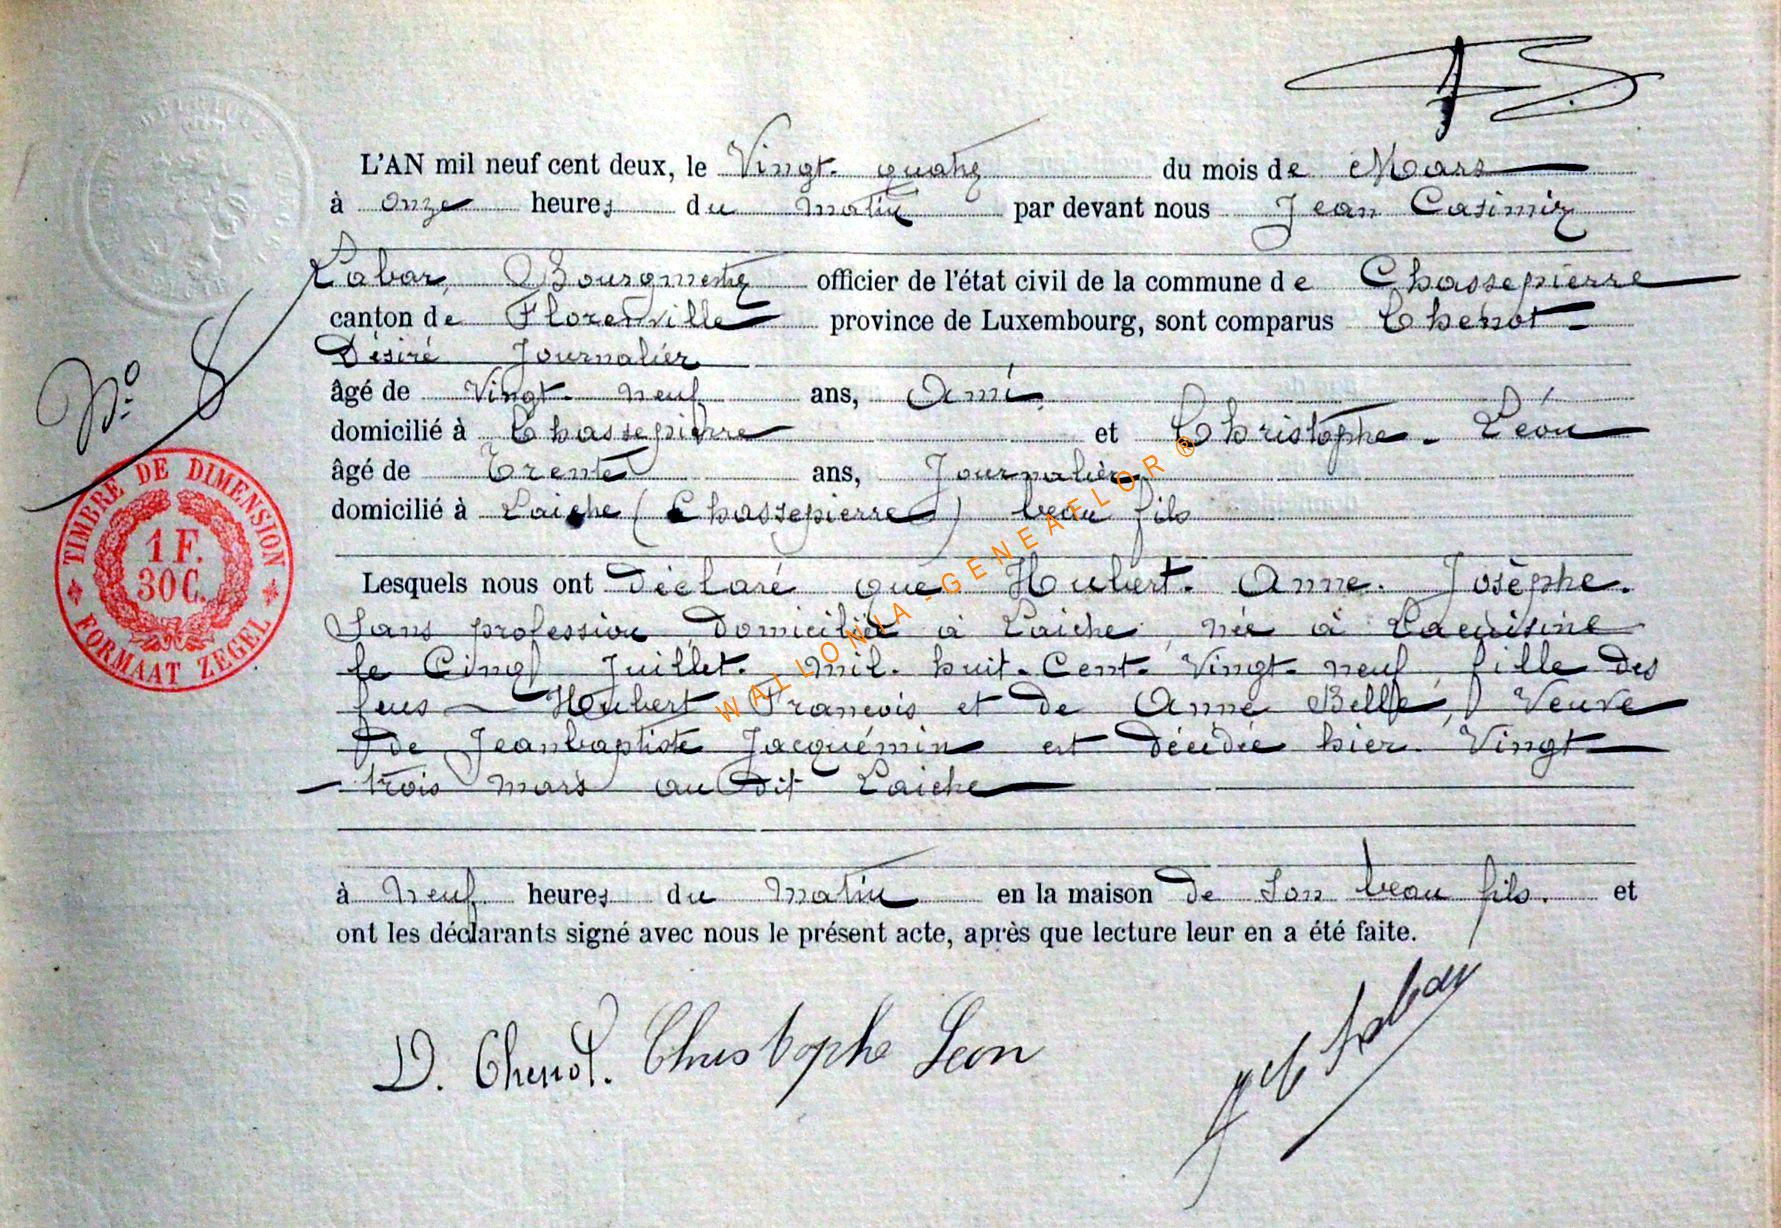 L'AN mil neuf cent deux, le Vingt-quatre du mois de Mars
à onze heures du matin par devant nous Jean Casimir
Labar, Bourgmestre officier de l'état civil de la commune de Chassepierre
canton de Florenville province de Luxembourg, sont comparus Chenot
Désiré Journalier
âgé de Vingt-neuf ans, Ami
domicilié à Chassepierre et Christophe - Léon
âgé de Trente ans, Journalier
domicilié à Laiche (Chassepierre) beau fils
Lesquels nous ont déclaré que Hubert. Anne. Josèphe.
Sans profession, domiciliée à Laiche, née à Lacuisine
le Cinq Juillet. mil. huit-Cent. Vingt-neuf, fille des
feus Hubert François et de Anne Belle, Veuve
de Jeanbaptiste Jacquémin est décédée hier Vingt
trois mars au dit Laiche
à Neuf heures du matin en la maison de Son beau fils. et
ont les déclarants signé avec nous le présent acte, après que lecture leur en a été faite.
D. Chenot. Christophe Leon
Labar
N° 8
TIMBRE DE DIMENSION
1 F.
30 C.
FORMAAT ZEGEL
WALLONIA-GENEAFLOR ®